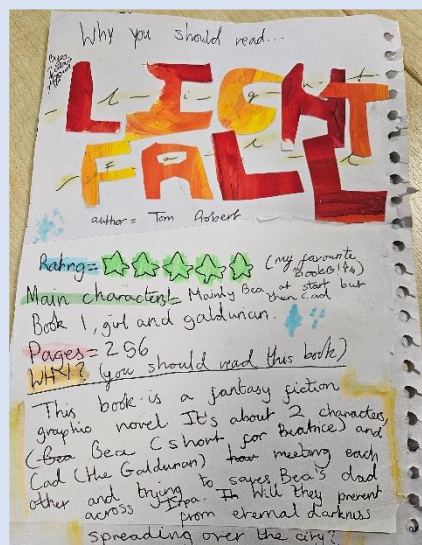 Why you should read...
LIGHT
FALL
author = Tom Robert
Rating = (my favourite
book
Main characters!= Mainly Bea at start but
then Cad
Book 1, girl and galdunan.
Pages = 256
WHY? (you should read this book)
This book is a fantasy fiction
graphic novel. It's about 2 characters,
Bea (short for Beatrice) and
Cad (the Galdunan) meeting each
other and trying to saves Bea's dad
across Irpa. Will they prevent
from eternal darkness
spreading over the city?